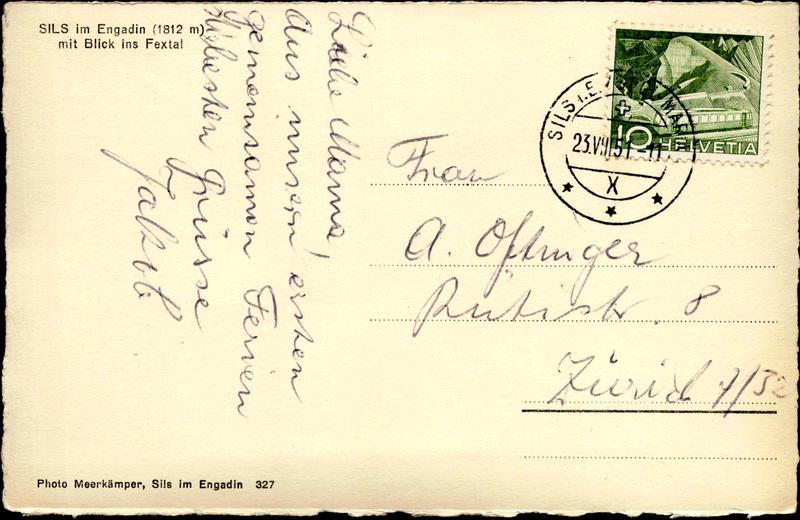 SILS im Engadin (1812 m)
mit Blick ins Fextal
Liebe Mama!
Aus unsern ersten
gemeinsamen Ferien
liebsten Grüsse
Jakob
10 HELVETIA
SILS i.E.
23.VII.51-11
X
Frau
A. Oftinger
Rütistr. 8
Zürich 7/32
Photo Meerkämper, Sils im Engadin 327